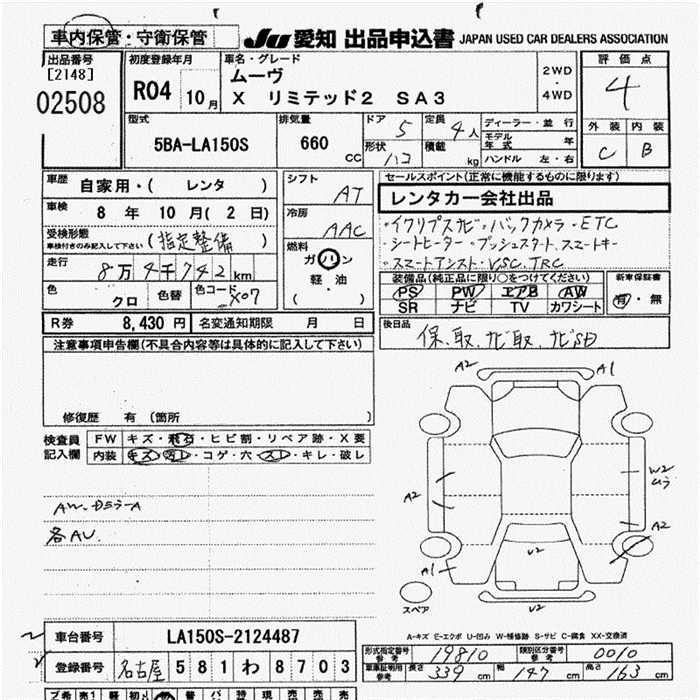 車内保管・守衛保管 JU 愛知 出品申込書 JAPAN USED CAR DEALERS ASSOCIATION
出品番号 [2148] 02508
初度登録年月 R04 10月
車名・グレード ムーヴ
X リミテッド2 SA3
2WD・4WD
評価点 4
外装 内装
C B
型式 5BA-LA150S
排気量 660 CC
ドア 5 定員 4人
形状 ハコ 積載 kg
ディーラー・並行
モデル年式 年
ハンドル 左・右
車歴 自家用・( レンタ )
車検 8年 10月(2日)
受検形態 車検付きのみ記入して下さい (指定整備)
走行 8万4千742km
色 クロ 色替 色コード X07
シフト AT
冷房 AAC
燃料 ガソリン
軽・油
( )
セールスポイント(正常に機能するものに限ります)
レンタカー会社出品
・イクリプスナビ・バックカメラ・ETC
・シートヒーター・プッシュスタート、スマートキー
・スマートアシスト・VSC、TRC
装備品(純正品に限り○をつけてください) 新車保証書
PS PW エアB AW 有・無
SR ナビ TV カワシート
後日品 保、取、ナビ取、ナビSD
R券 8,430円 名変通知期限 月 日
注意事項申告欄(不具合内容等は具体的に記入して下さい)
修復歴 有 (箇所 )
検査員記入欄
FW キズ・飛石・ヒビ割・リペア跡・X要
内装 キズ・汚レ・コゲ・穴・スレ・キレ・破レ
各AU.
A2 A1
A2
W2 ムラ
A2
V2
A1
V2
スペア
A-キズ E-エクボ U-凹み W-補修跡 S-サビ C-腐食 XX-交換済
車台番号 LA150S-2124487
登録番号 名古屋 581 わ 8703
形式指定番号 参考 19810 類別区分番号 参考 0010
車庫証明用 参考 長さ 339 cm 幅 147 cm 高さ 163 cm